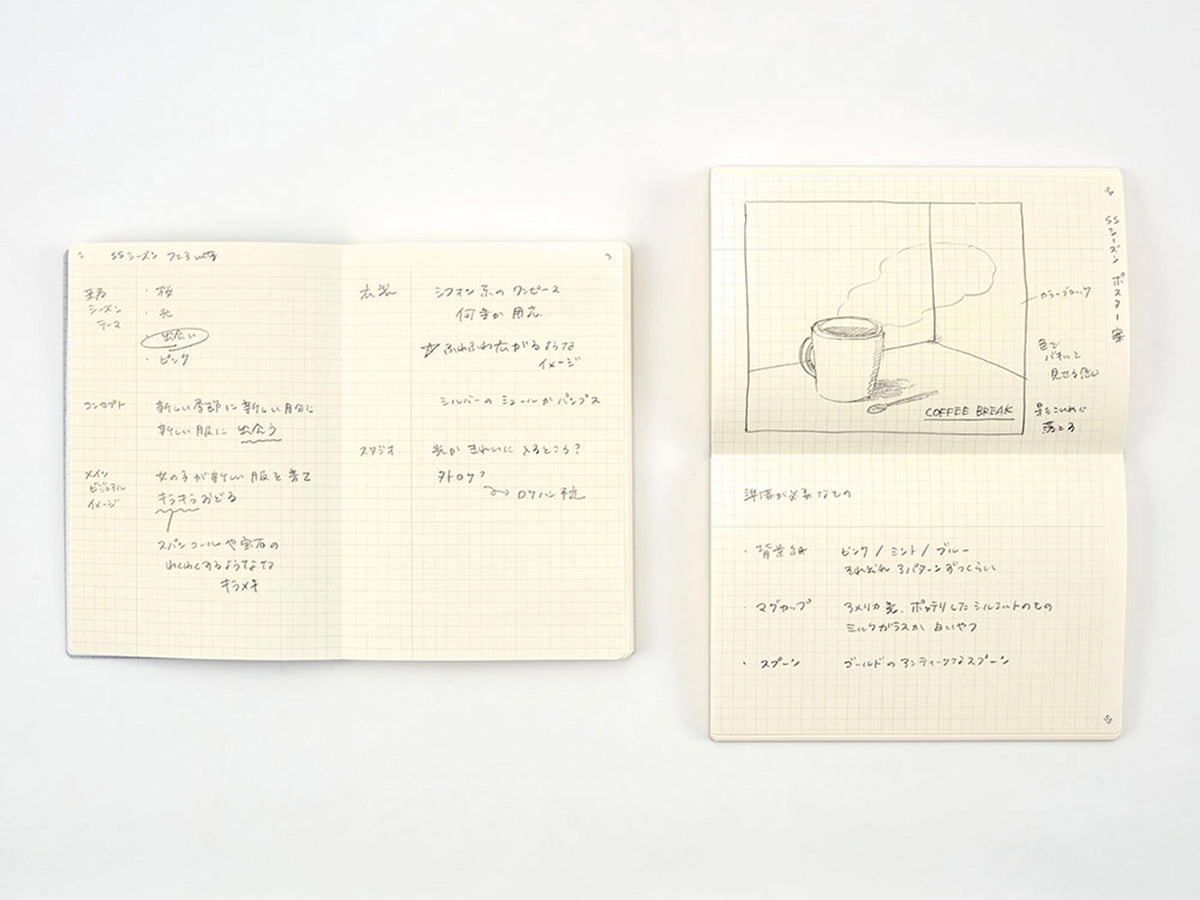 2
SSシーズン
来春
シーズン
テーマ
・桜
・光
出会い
・ピンク
コンセプト
新しい季節に新しい自分に
新しい服に 出会う
メイン
ビジュアル
イメージ
女の子が新しい服を着て
キラキラおどる
スパンコールや宝石の
わくわくするような
キラメキ
3
衣装
シフォン系のワンピース
何着か用意
☆ふわふわ広がるような
イメージ
シルバーのミュールかパンプス
スタジオ
光がきれいに入るところ?
外ロケ?
ロケハン予定
54
SSシーズン ポスター案
カラーブロック
色で
パキッと
見せる感じ
COFFEE BREAK
準備が必要なもの
・背景紙 ピンク/ミント/ブルー
それぞれ3パターンずつくらい
・マグカップ アメリカ製、ポッテリしたシルエットのもの
ミルクガラスか白いやつ
・スプーン ゴールドのアンティークなスプーン
55